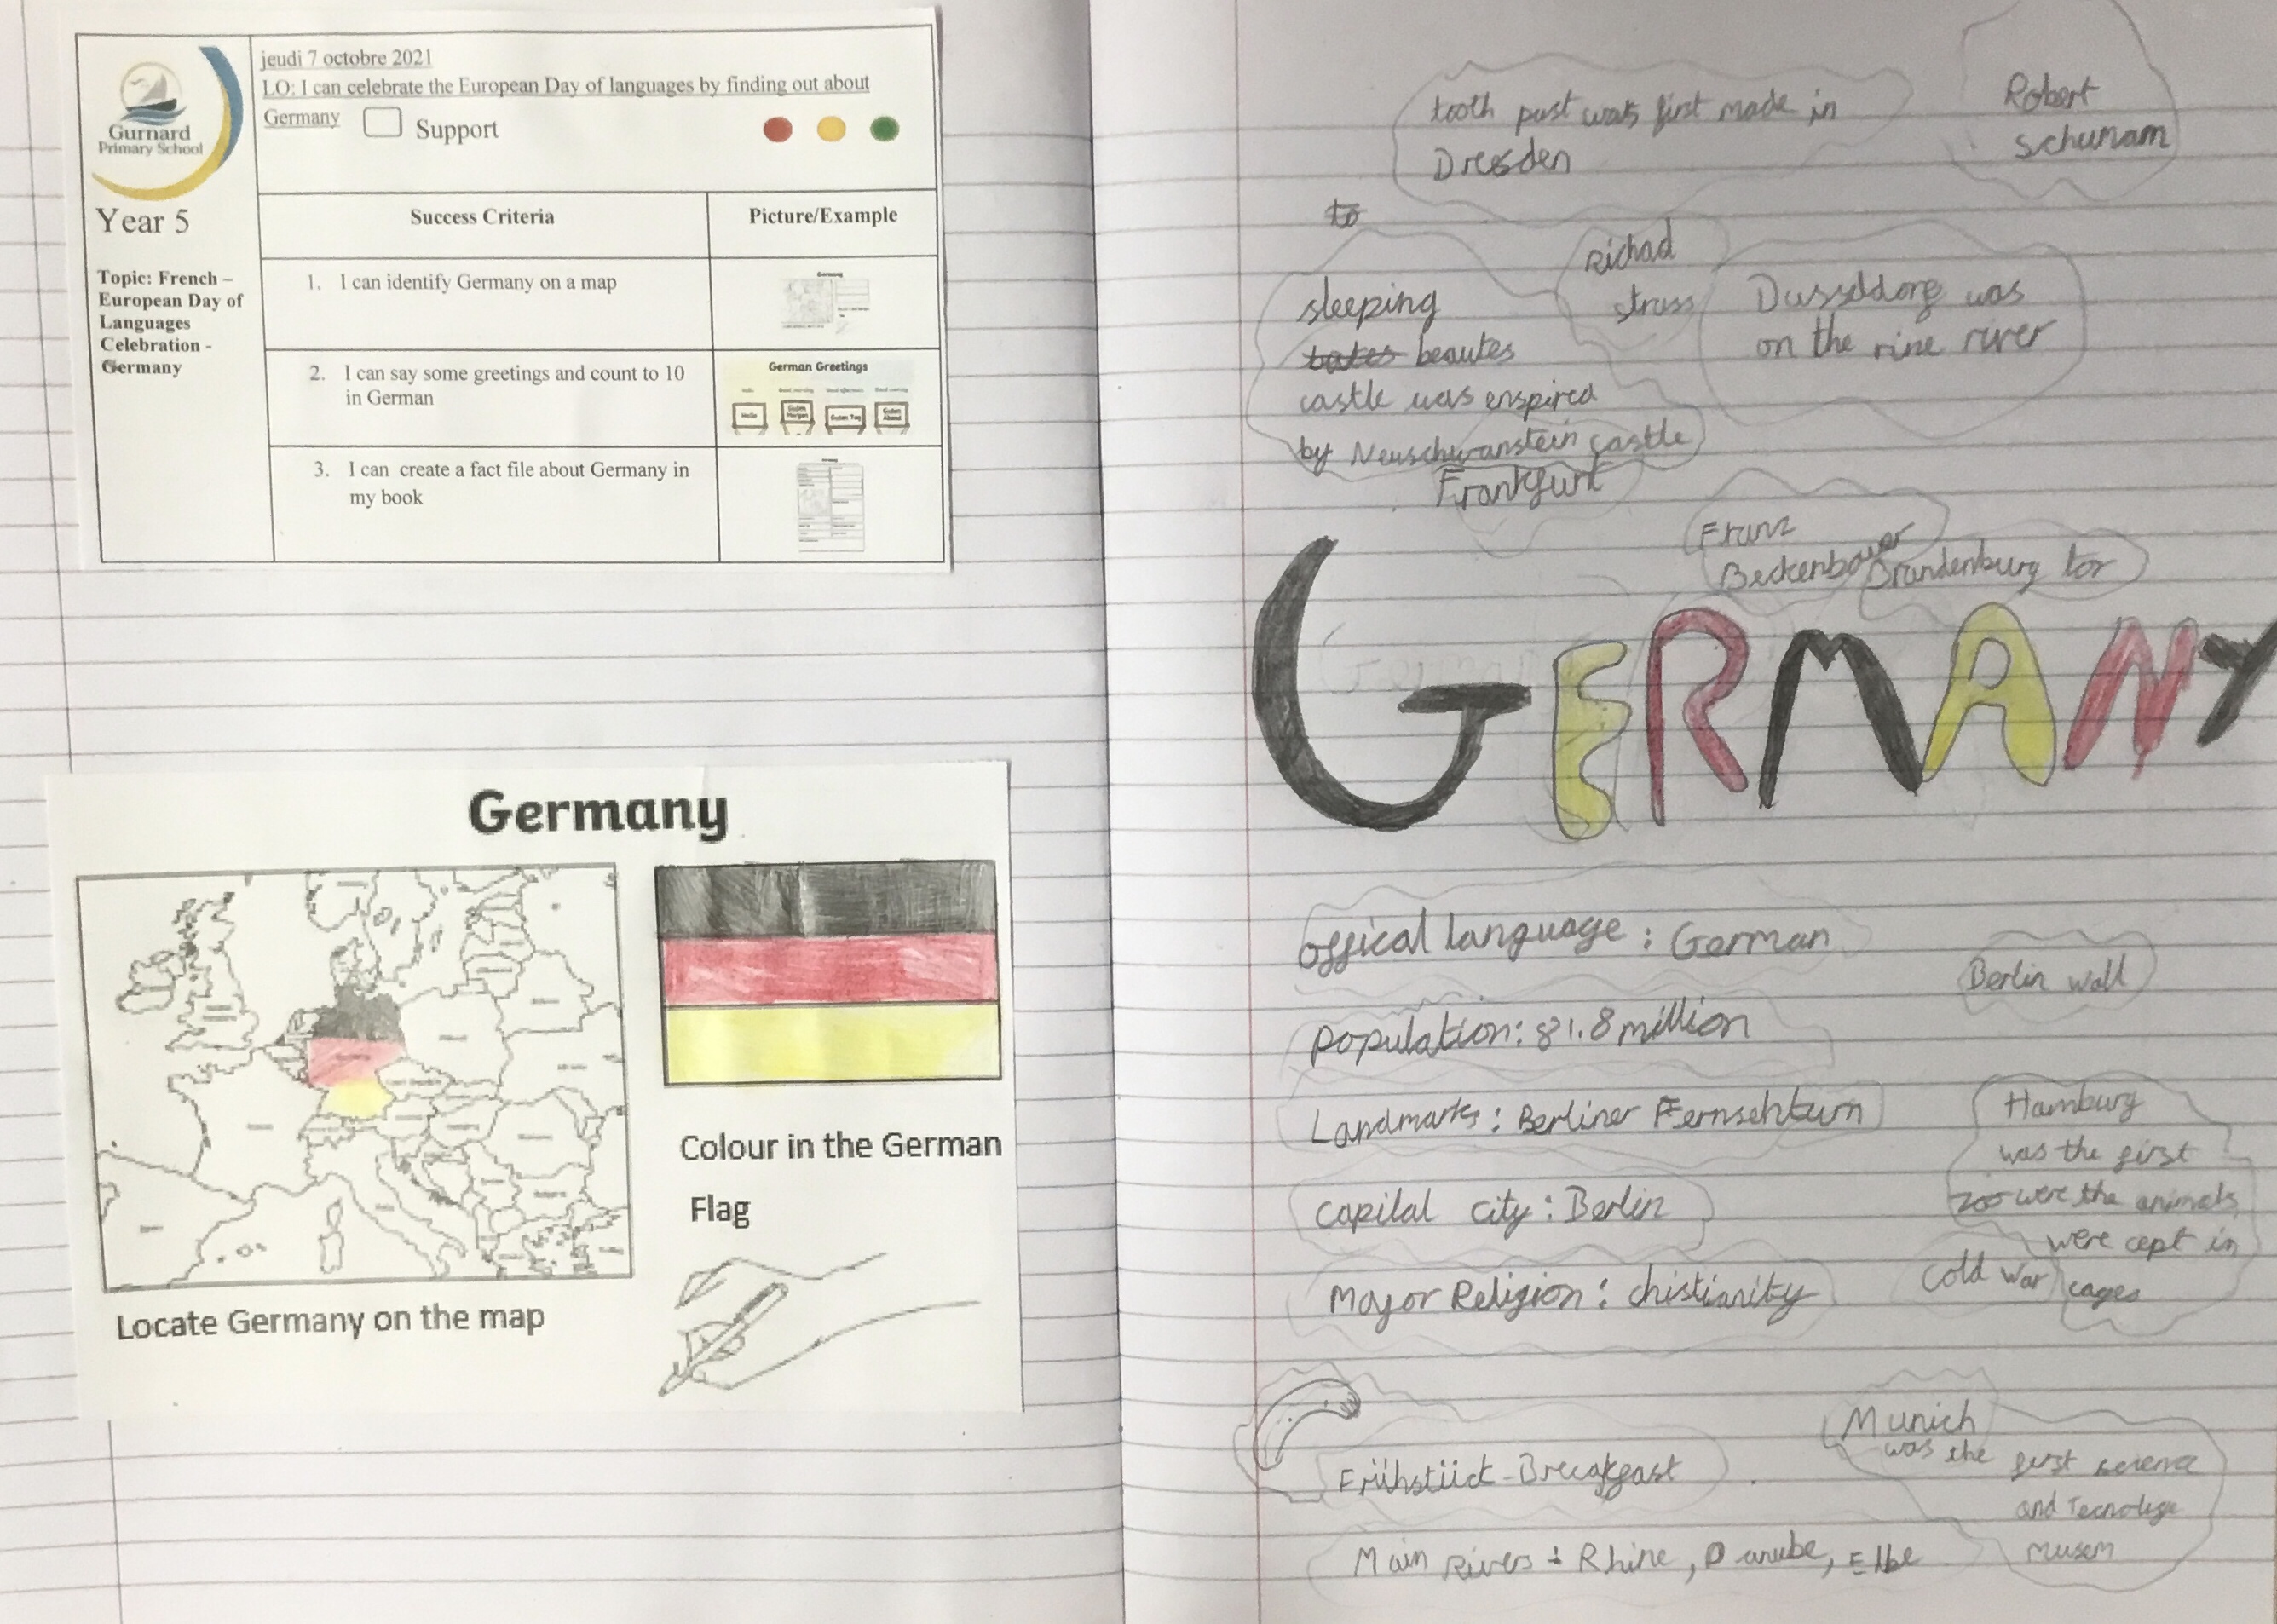 Gurnard
Primary School
Year 5
Topic: French –
European Day of
Languages
Celebration -
Germany
jeudi 7 octobre 2021
LO: I can celebrate the European Day of languages by finding out about
Germany Support
Success Criteria
Picture/Example
1. I can identify Germany on a map
Germany
2. I can say some greetings and count to 10
in German
German Greetings
Hello
Guten Morgen
Guten Tag
Guten Abend
3. I can create a fact file about Germany in
my book
Germany
Locate Germany on the map
Colour in the German
Flag
tooth past was first made in
Dresden
Robert
Schumam
to
sleeping
beautes
castle was enspired
by Neuschwanstein castle
Richad
struss
Dusseldorg was
on the rine river
Frankfurt
Franz
Beckenbauer
Brandenburg tor
GERMANY
offical language : German
Berlin wall
Population: 81.8 million
Landmarks : Berliner Fernsehturn
Hamburg
was the first
zoo were the animals
were cept in
cages
capital city : Berlin
cold war
Major Religion : christianity
Frühstück - Breakfast
Munich
was the first science
and Tecnologe
musem
Main Rivers : Rhine, Danube, Elbe